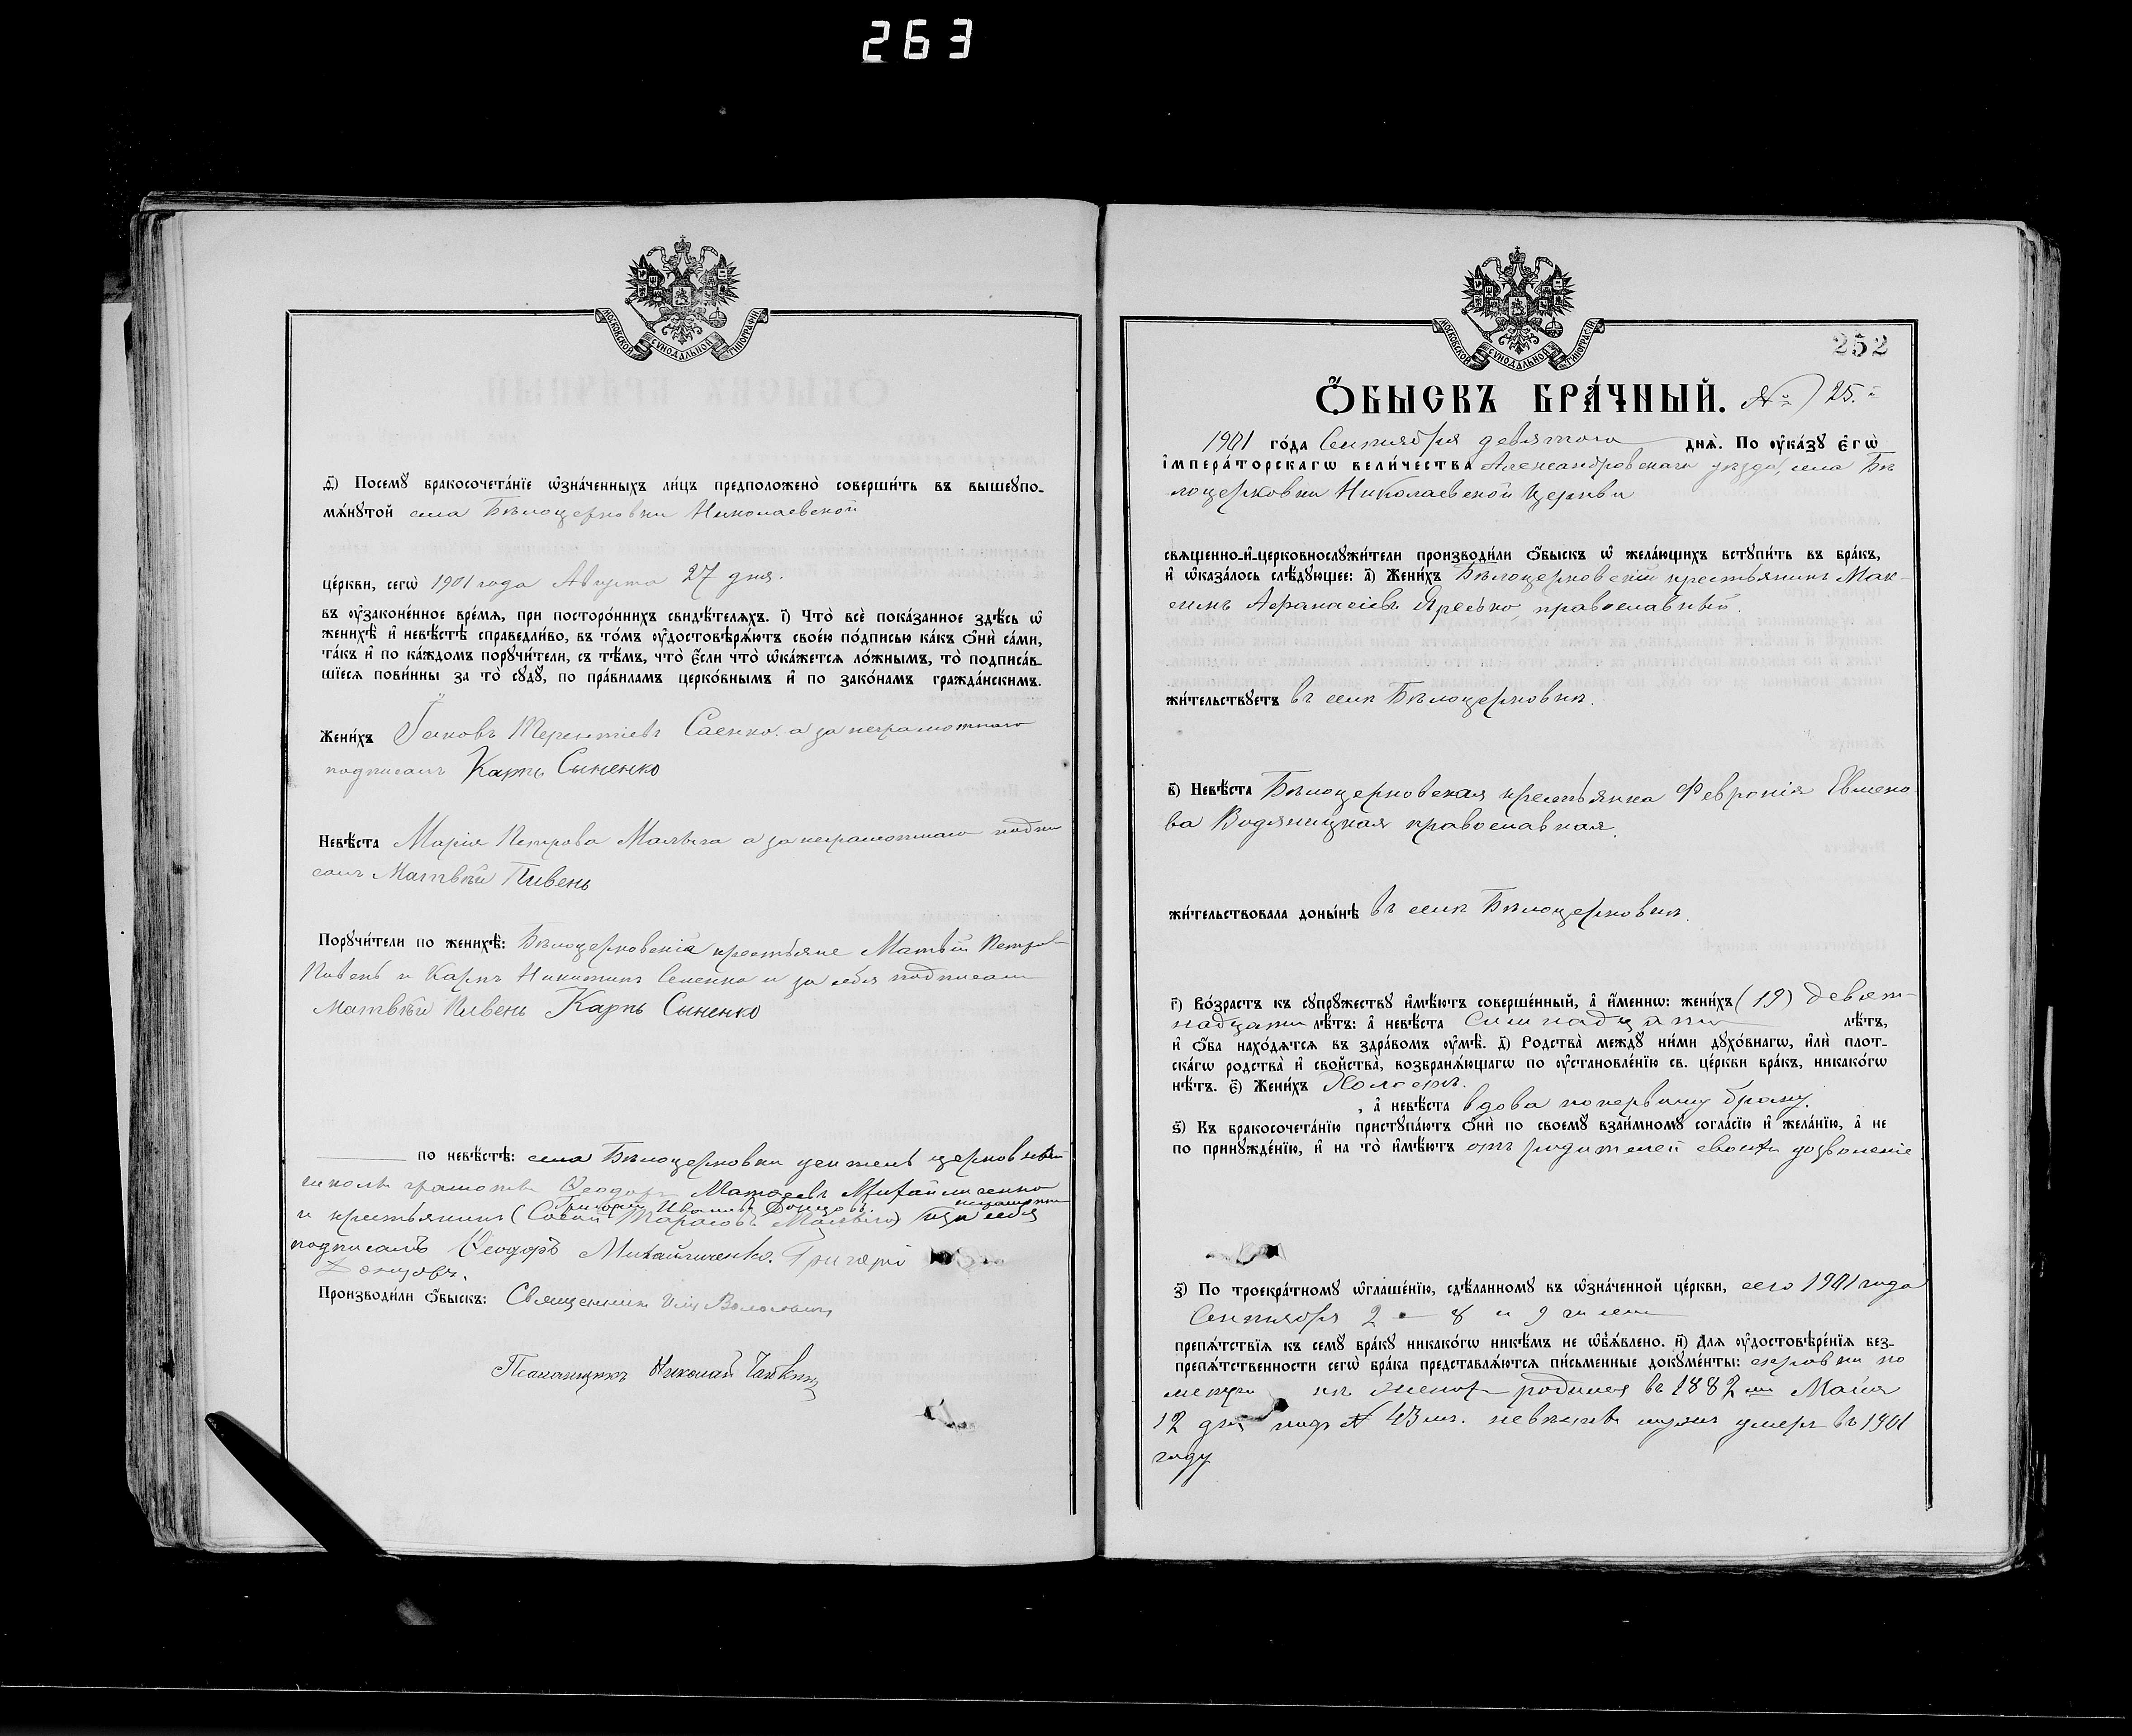 263
МОСКОВСКОЙ СѴНОДАЛЬНОЙ ТИПОГРАФІИ
ѳ҃) Посемꙋ бракосочета́нїе ѡ҆зна́ченныхъ ли́цъ предположено̀ соверши́ть въ вышеꙋпо-
мѧ́нꙋтой села Бѣлоцерковки Николаевской
це́ркви, сегѡ̀ 1901 года Августа 27 дня.
въ ᲂу҆законе́нное вре́мѧ, при посторо́ннихъ свидѣ́телѧхъ. і҃) Что̀ всѐ пока́занное здѣ́сь ѡ҆
женихѣ̀ и҆ невѣ́стѣ справедли́во, въ то́мъ ᲂу҆достовѣрѧ́ютъ свое́ю по́дписью ка́къ ѻ҆нѝ са́ми,
та́къ и҆ по ка́ждомъ порꙋчи́тели, съ тѣ́мъ, что̀ є҆́сли что̀ ѡ҆ка́жетсѧ ло́жнымъ, то̀ подписа́в-
шїесѧ пови́нны за то̀ сꙋдꙋ̀, по пра́виламъ церко́внымъ и҆ по зако́намъ гражда́нскимъ.
Жени́хъ Іаковъ Терентіевъ Саенко. а за неграмотнаго
подписалъ Карпъ Сыненко
Невѣ́ста Марія Петрова Малыга а за неграмотнаго подпи
салъ Матвѣй Пивень
Порꙋчи́тели по женихѣ̀: Бѣлоцерковскія крестьяне Матвѣй Петров
Пивень и Карпъ Никитинъ Сененко и за себя подписали
Матвѣй Пивень Карпъ Сыненко
по невѣ́стѣ: села Бѣлоцерковки учитель церковной
школы грамоты Ѳеодоръ Матѳеевъ Михайличенко
Григорій Ивановъ Донцовъ.
и крестьянинъ (Сосой Тарасовъ Малыга) за себя
подписалъ Ѳеодоръ Михайличенко. Григорій
Донцовъ.
Производи́ли ѻ҆́быскъ: Священникъ Илія
Псаломщикъ Николай
МОСКОВСКОЙ СѴНОДАЛЬНОЙ ТИПОГРАФІИ
252
Ѻ҆́БЫСКЪ БРА́ЧНЫЙ. № 25.
1901 го́да Сентября девятаго днѧ̀. По ᲂу҆ка́зꙋ є҆гѡ̀
і҆мпера́торскагѡ вели́чества Александровскаго уѣзда, села Бѣ
лоцерковки Николаевской Церкви
свѧщенно-и҆-церковнослꙋжи́тели производи́ли ѻ҆́быскъ ѡ҆ жела́ющихъ встꙋпи́ть въ бра́къ,
и҆ ѡ҆каза́лось слѣ́дꙋющее: а҃) Жени́хъ Бѣлоцерковскій крестьянинъ Мак-
симъ Аѳанасіевъ Яресько православный.
жи́тельствꙋетъ въ селѣ Бѣлоцерковкѣ.
в҃) Невѣ́ста Бѣлоцерковская крестьянка Февронія Евмено
ва Водяницкая православная.
жи́тельствовала доны́нѣ въ селѣ Бѣлоцерковкѣ.
г҃) Во́зрастъ къ сꙋпрꙋ́жествꙋ и҆мѣ́ютъ соверше́нный, а҆ и҆́меннѡ: жени́хъ (19) девят-
надцати лѣ́тъ: а҆ невѣ́ста Семнадцати лѣ́тъ,
и҆ ѻ҆́ба нахо́дѧтсѧ въ здра́вомъ ᲂу҆мѣ̀. д҃) Родства̀ междꙋ̀ ни́ми дꙋхо́внагѡ, и҆лѝ плот-
ска́гѡ родства̀ и҆ свойства̀, возбранѧ́ющагѡ по ᲂу҆становле́нїю св. це́ркви бра́къ, никако́гѡ
нѣ́тъ. є҃) Жени́хъ Холостъ.
, а҆ невѣ́ста вдова по первому браку.
ѕ҃) Къ бракосочета́нїю пристꙋпа́ютъ ѻ҆нѝ по своемꙋ̀ взаи́мномꙋ согла́сїю и҆ жела́нїю, а҆ не
по принꙋжде́нїю, и҆ на то̀ и҆мѣ́ютъ отъ родителей своихъ дозволеніе
з҃) По троекра́тномꙋ ѡ҆глаше́нїю, сдѣ́ланномꙋ въ ѡ҆зна́ченной це́ркви, сего 1901 года
Сентября 2 – 8 и 9 числа
препѧ́тствїѧ къ семꙋ̀ бра́кꙋ никако́гѡ никѣ́мъ не ѡ҆б̾ѧ́влено. и҃) Длѧ ᲂу҆достовѣре́нїѧ без-
препѧ́тственности сегѡ̀ бра́ка представлѧ́ютсѧ пи́сьменные докꙋме́нты: справки по
метри женихъ родился въ 1882 Маія
12 дня подъ № 43 м. невѣсты мужъ умеръ въ 1901
году